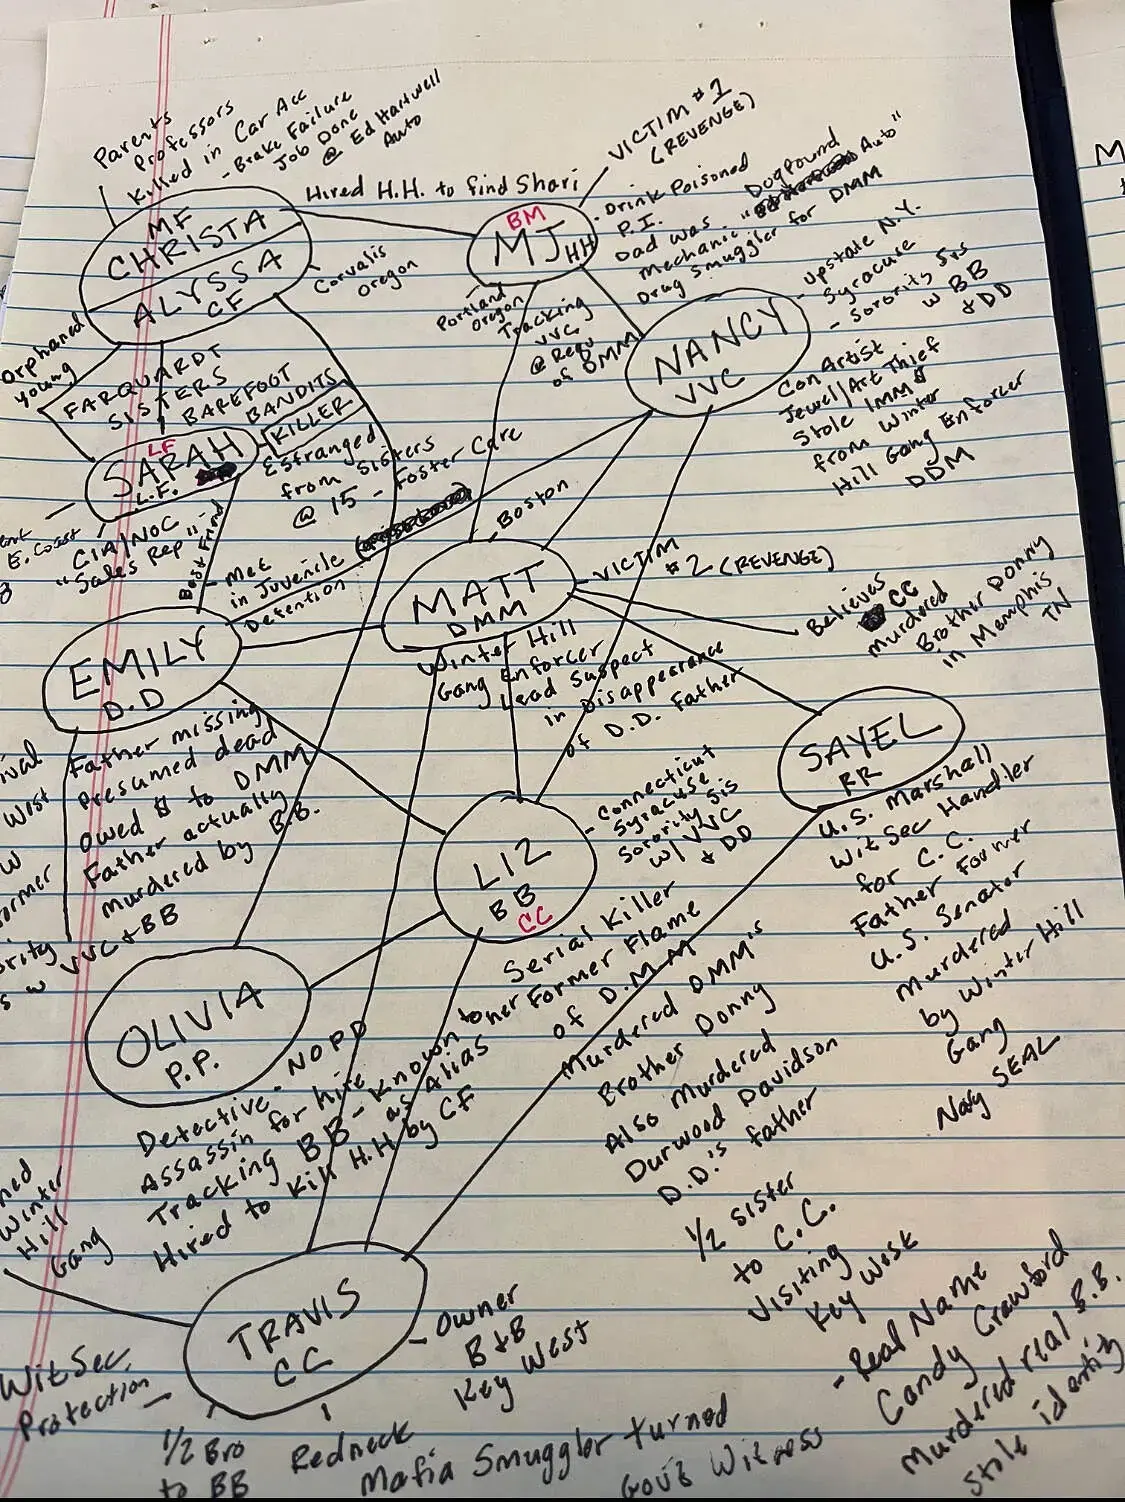 Parents
Professors
Killed in Car Acc
- Brake Failure
Job Done
@ Ed Hartwell
Auto
MF
CHRISTA
ALYSSA
CF
Hired H.H. to find Shari
Corvalis
Oregon
Orphaned
young
VICTIM #1
(REVENGE)
BM
MJ HH
- Drink Poisoned
P.I.
Dad was Dogpound
mechanic " Auto"
Drug smuggler for DMM
Portland
Oregon
Tracking
VVC
@ Requ
of DMM
NANCY
VVC
- upstate N.Y.
Syracuse
- Sorority Srs
w BB
+ DD
Con Artist
Jewel/Art Thief
Stole 1MM $
from Winter
Hill Gang Enforcer
DDM
FARQUARDT
SISTERS
BAREFOOT
BANDITS
KILLER
LF
SARAH
L.F.
Estranged
from Sisters
@ 15 - Foster Care
E. Coast
CIA/NOC
"Sales Rep"
Best Friend
- Met
in Juvenile
Detention
EMILY
D.D
Father missing
Presumed dead
owed $ to DMM
Father actually
murdered by B.B.
VVC + BB
- Boston
MATT
DMM
- VICTIM
#2 (REVENGE)
Believes
CC
murdered
Brother Donny
in Memphis
TN
Winter Hill
Gang Enforcer
Lead Suspect
in Disappearance
of D.D. Father
SAYEL
RR
U.S. Marshall
WitSec Handler
for C.C.
Father Former
U.S. Senator
Murdered
by Winter Hill
Gang
Navy SEAL
LIZ
BB
CC
- Connecticut
Syracuse
Sorority Sis
w/ VVC
+ DD
Serial Killer
Former Flame
of D.M.M
Murdered DMM's
Brother Donny
Also Murdered
Durwood Davidson
D.D.'s father
1/2 sister
to C.C.
Visiting
Key West
- Real Name
Candy Crawford
Murdered real B.B.
stole identity
OLIVIA
P.P.
Detective - NOPD
Assassin for hire
Tracking BB - Known to her
as Alias
Hired to Kill H.H by CF
Winter
Hill
Gang
TRAVIS
CC
- Owner
B+B
Key West
WitSec.
Protection
1/2 Bro
to BB
Redneck
Mafia Smuggler turned
Gov't Witness